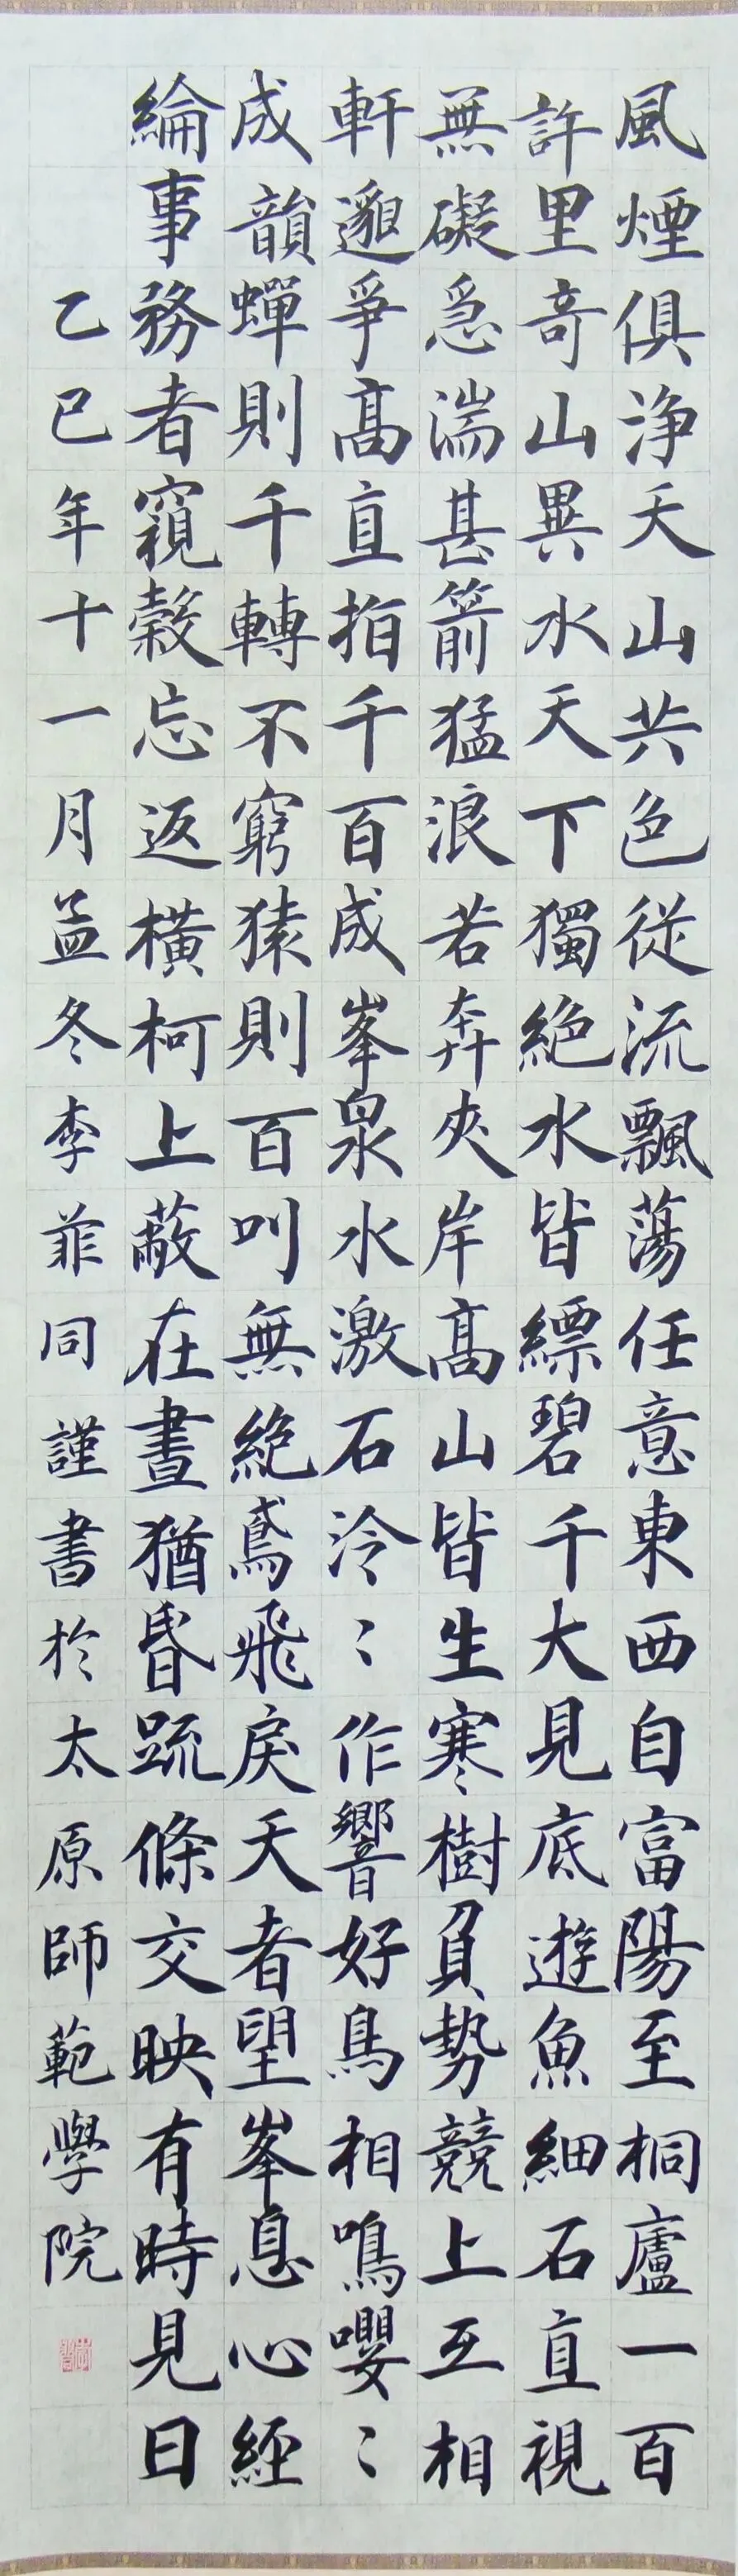 風煙俱浄天山共色從流飄蕩任意東西自富陽至桐廬一百
許里奇山異水天下獨絶水皆縹碧千大見底遊魚細石直視
無礙急湍甚箭猛浪若奔夾岸高山皆生寒樹負勢競上互相
軒邈爭髙直指千百成峯泉水激石泠〻作響好鳥相鳴嚶〻
成韻蟬則千轉不窮猿則百叫無絶鳶飛戾天者望峯息心經
綸事務者窺穀忘返橫柯上蔽在晝猶昏疏條交映有時見日
乙巳年十一月孟冬李菲同謹書於太原師範學院